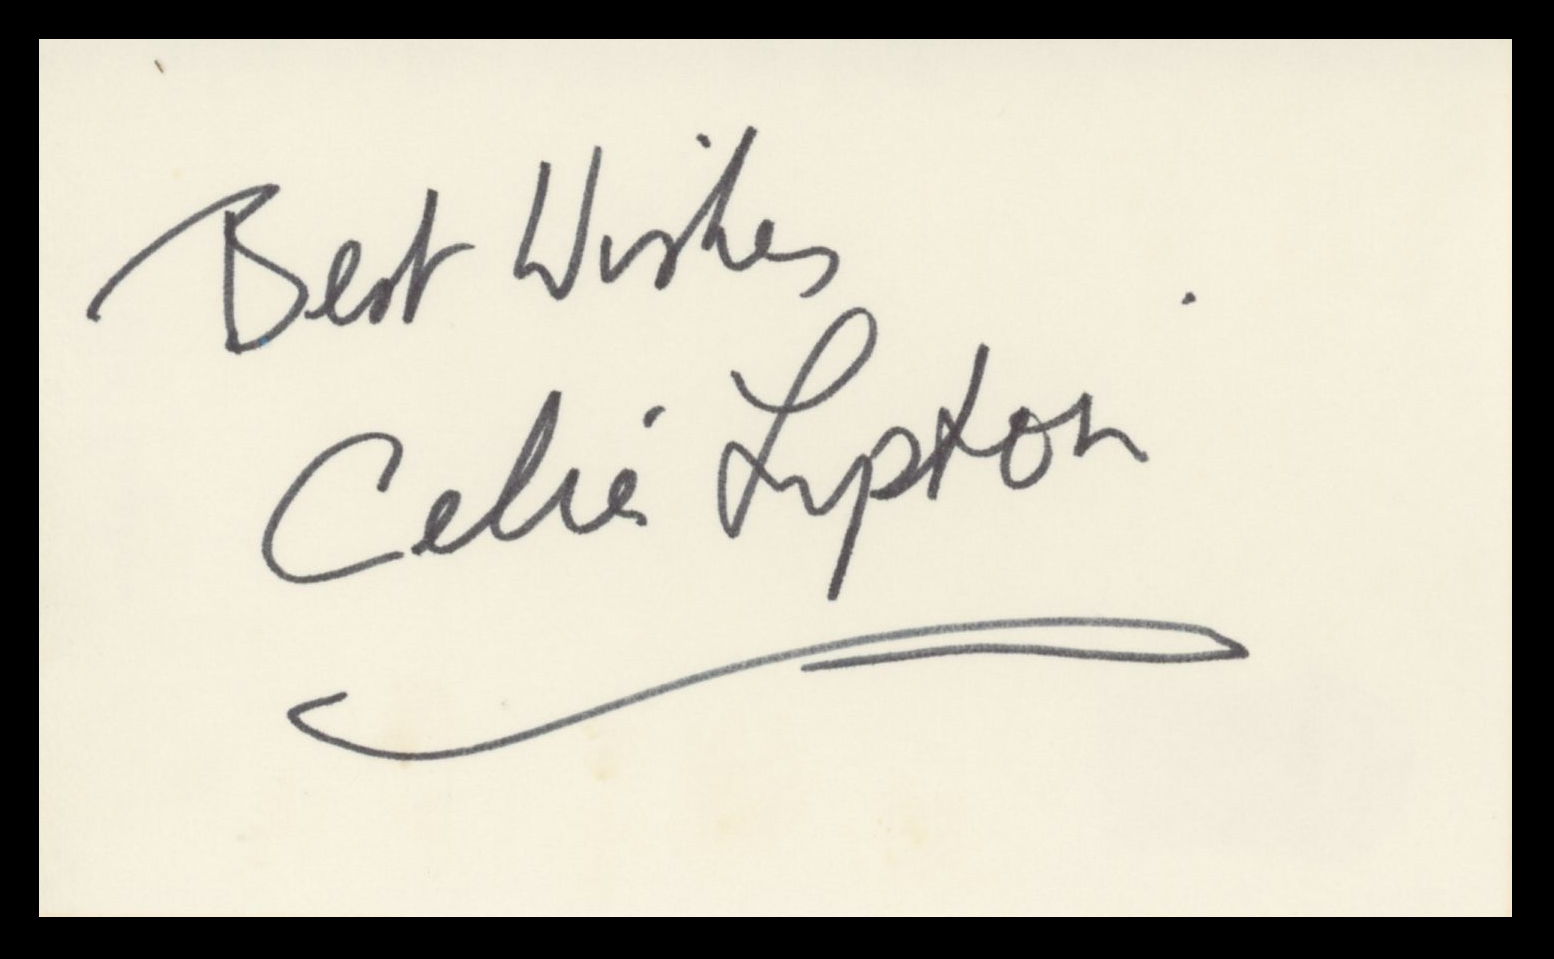 Best Wishes
Celia Lipton